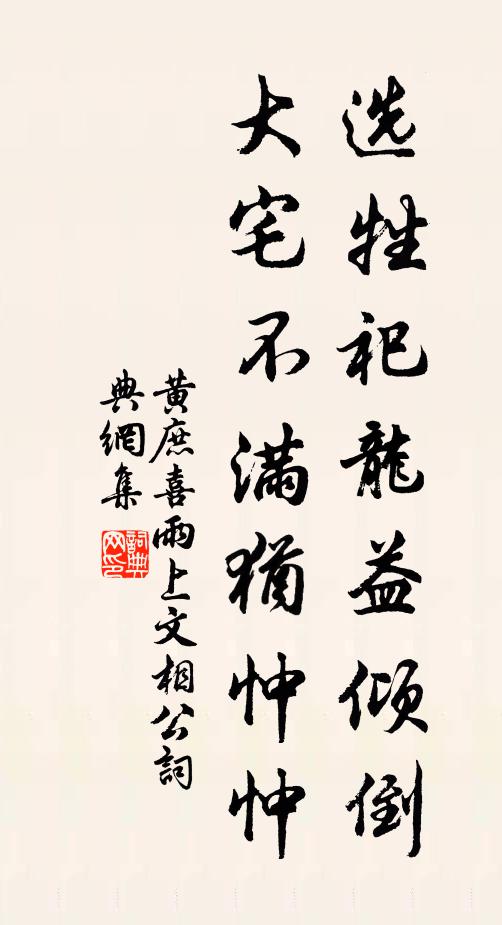 选牲祀龍益倾倒
大宅不滿猶忡忡
黄庶喜雨上文相公詞
典網集
詞典网印